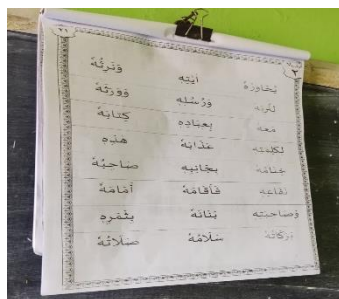 ٢١ ٢
يُحَاوِرُهُ اٰيٰتِهٖ وَنَرِثُهُ
لِرَبِّهٖ وَرُسُلِهٖ وَوَرِثَهُ
مَعَهُ بِعِبَادِهٖ كِتَابَهُ
لِكَلِمٰتِهٖ عَذَابَهُ هٰذِهٖ
خِتَامُهُ بِجَانِبِهٖ صَاحِبُهُ
فَأَقَامَهُ أَمَامَهُ
وَصَاحِبَتِهٖ بَنَانَهُ بِثَمَرِهٖ
بَرَكَاتُهُ سَلَامُهُ صَلَاتُهُ